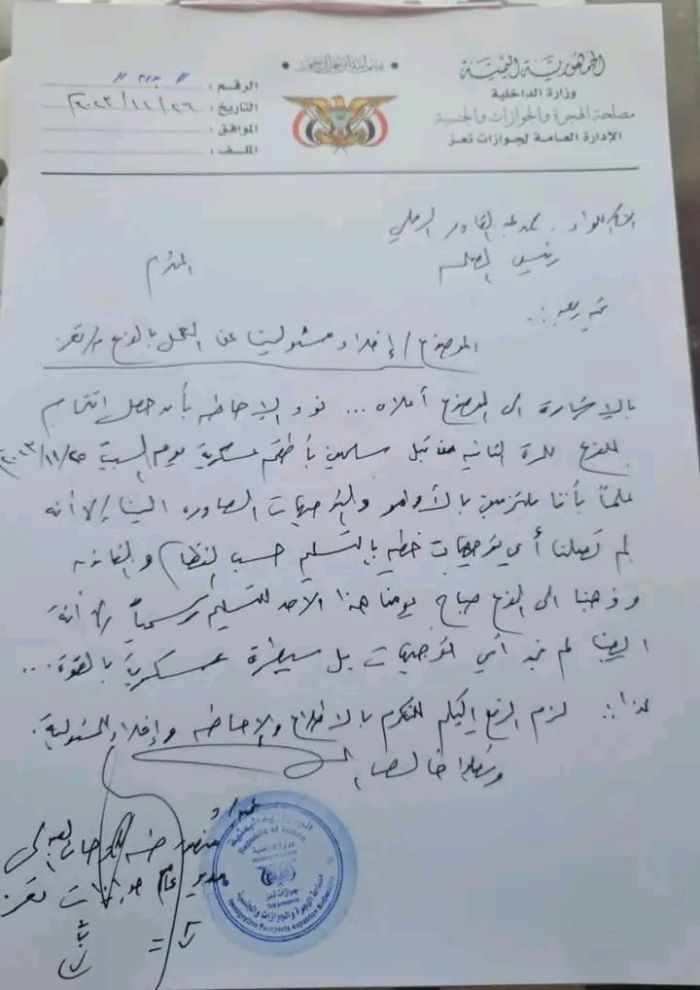 بسم الله الرحمن الرحيم
الجمهورية اليمنية
وزارة الداخلية
مصلحة الهجرة والجوازات والجنسية
الإدارة العامة لجوازات تعز
الرقم :
التاريخ : ٢٦/١١/٢٠٢٣م
الموافق :
الملف :
الأخ اللواء / عبد القادر
رئيس المصلحة
المحترم
تحية طيبة..
الموضوع/ إخلاء مسئوليتنا عن العمل بالفرع م/تعز
بالإشارة الى الموضوع أعلاه... نود الإحاطة بأنه حصل اقتحام
للفرع للمرة الثانية من قبل مسلحين بأطقم عسكرية يوم السبت ٢٥/١١/٢٠٢٣
علماً بأننا ملتزمين بالأوامر والتوجيهات الصادرة الينا إلا أنه
لم تصلنا أي توجيهات خطية بالتسليم حسب النظام والقانون
وذهبنا الى الفرع صباح يومنا هذا الأحد للتسليم رسمياً إلا أنه
ايضا لم نجد أي توجيهات بل سيطرة عسكرية بالقوة...
لذا :: لزم الرفع إليكم للتكرم بالاطلاع والإحاطة وإخلاء المسئولية.
وشكرا خالصا
عميد/
منصور
مدير عام جوازات تعز
الجمهورية اليمنية
Republic of Yemen
وزارة الداخلية
جوازات تعز
مصلحة الهجرة والجوازات والجنسية